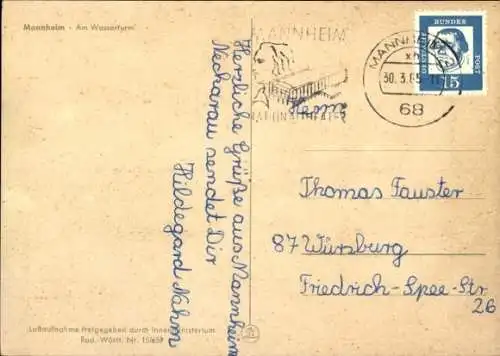 Mannheim - Am Wasserturm
Herzliche Grüße aus Mannheim
Neckarau sendet Dir
Hildegard Nahm
MANNHEIM
NATIONALTHEATER
MANNHEIM
30. 3. 65
68
DEUTSCHE
BUNDES
POST
15
Herrn
Thomas Fauster
87 Würzburg
Friedrich-Spee-Str
26
Luftaufnahme freigegeben durch Innenministerium
Bad.-Württ. Nr.